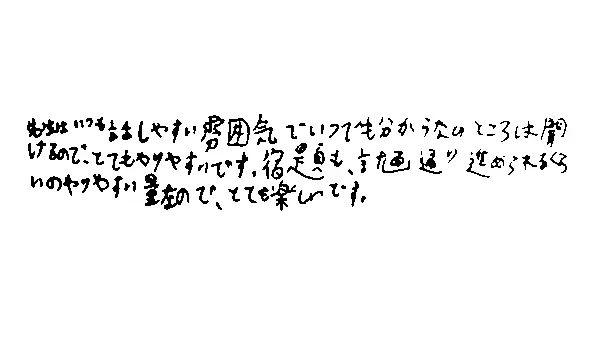 先生はいつも話しやすい雰囲気でいつでも分からないところは聞
けるので、とてもやりやすいです。宿題も、計画通り進められるくら
いのやりやすい量なので、とても楽しいです。